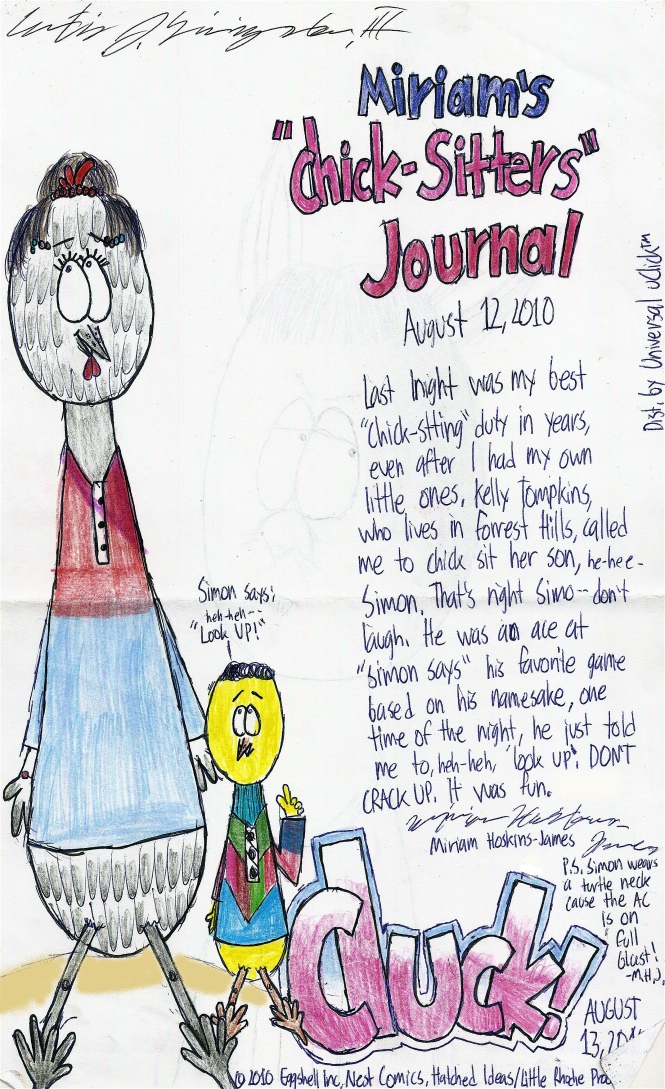 Miriam's
"Chick-Sitters"
Journal
August 12, 2010
Dist. by Universal uClick™
Last night was my best
"Chick-stting" duty in years,
even after I had my own
little ones. Kelly Tompkins,
who lives in Forrest Hills, called
me to chick sit her son, he-hee-
Simon. That's right Simo--don't
laugh. He was an ace at
"simon says" his favorite game
based on his namesake, one
time of the night, he just told
me to, heh-heh, "look up". DON'T
CRACK UP. It was fun.
Miriam Hoskins-James
P.S. Simon wears
a turtle neck
cause the AC
is on
Full
Blast!
-M.H.J.
Simon says;
heh-heh--
"Look UP!"
Cluck!
AUGUST
13,
© 2010 Eggshell Inc, Nest Comics, Hatched Ideas/Little Rhode